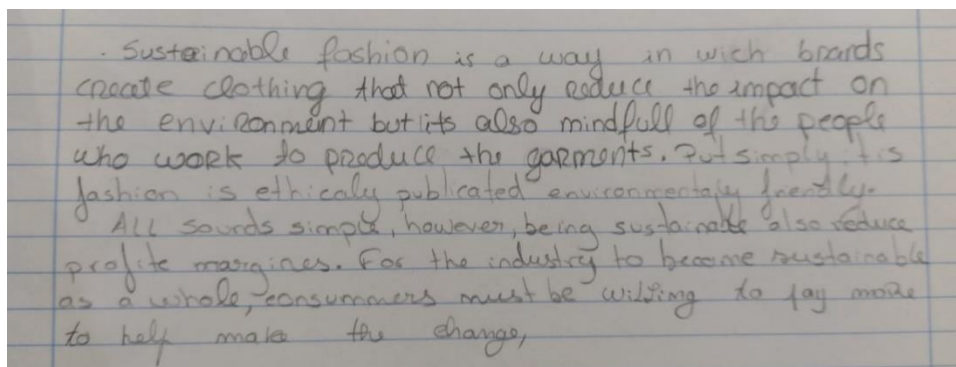 . Sustainable fashion is a way in wich brands
create clothing that not only reduce the impact on
the environment but its also mindfull of the people
who work to produce the garments. Put simply it is
fashion is ethicaly publicated environmentaly friently.
All sounds simple, however, being sustainable also reduce
profite margines. For the industry to become sustainable
as a whole, consummers must be willing to pay more
to help make the change,